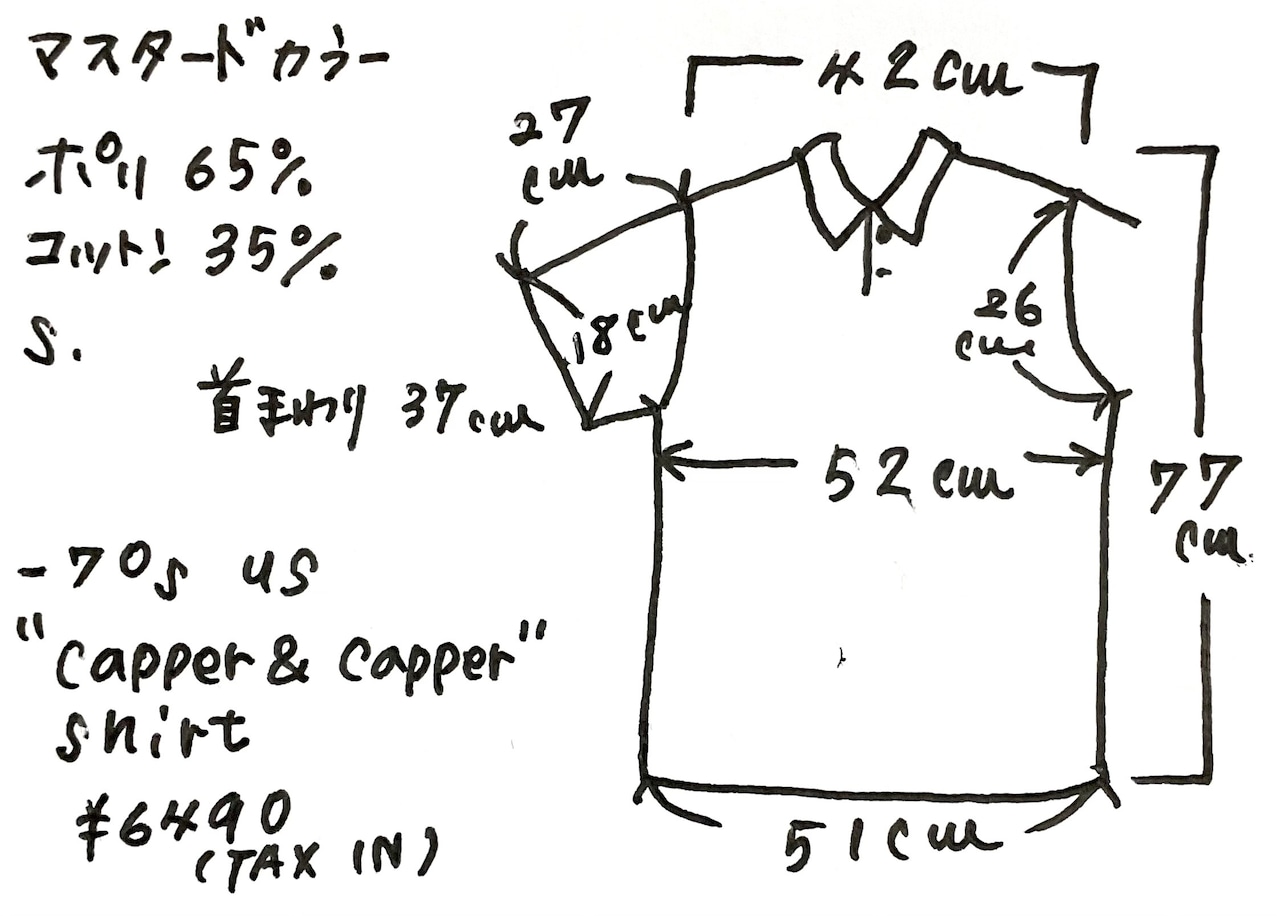 マスタードカラー
ポリ 65%
コットン 35%
S.
首まわり 37cm
-70s US
"Capper & Capper"
shirt
¥6490
(TAX IN)
42cm
27
cm
18cm
26
cm
52cm
77
cm
51cm